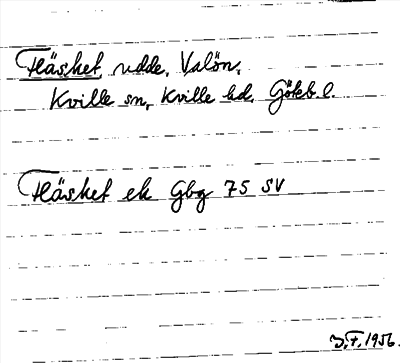 Fläsket udde, Valön,
Kville sn, Kville hd, Göteb. l.
Fläsket ek Gbg 75 SV
J.F. 1956.